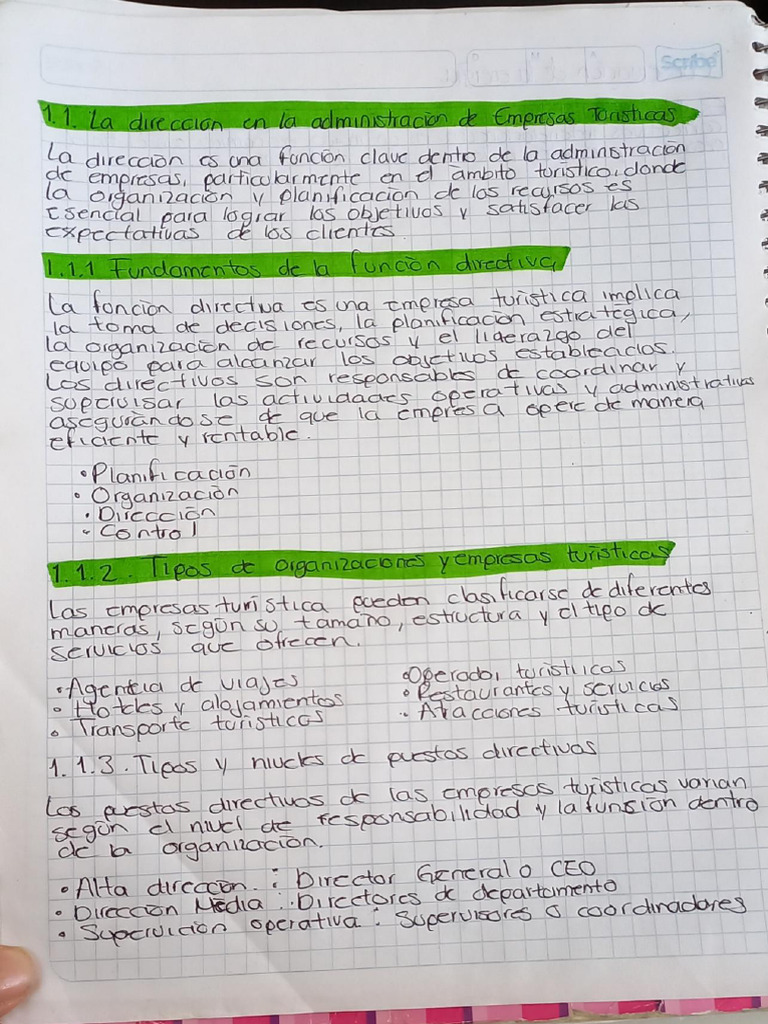 Scribe
1.1. La dirección en la administración de Empresas Turísticas
La dirección es una función clave dentro de la administración
de empresas, particularmente en el ámbito turístico, donde
la organización y planificación de los recursos es
Esencial para lograr los objetivos y satisfacer las
expectativas de los clientes
1.1.1 Fundamentos de la función directiva
La función directiva es una empresa turística implica
la toma de decisiones, la planificación estratégica,
la organización de recursos y el liderazgo del
equipo para alcanzar los objetivos establecidos.
Los directivos son responsables de coordinar y
supervisar las actividades operativas y administrativas
asegurándose de que la empresa opere de manera
eficiente y rentable.
• Planificación
• Organización
• Dirección
• Control
1.1.2. Tipos de organizaciones y empresas turísticas
Las empresas turística pueden clasificarse de diferentes
maneras, según su tamaño, estructura y el tipo de
servicios que ofrecen.
• Agencia de viajes
• Hoteles y alojamientos
• Transporte turísticos
• Operador turísticos
• Restaurantes y servicios
• Atracciones turísticas
1.1.3. Tipos y niveles de puestos directivos
Los puestos directivos de las empresas turísticas varian
según el nivel de responsabilidad y la funsión dentro
de la organización.
• Alta dirección. : Director General o CEO
• Dirección Media : Directores de departamento
• Supervición operativa : Supervisores o coordinadores